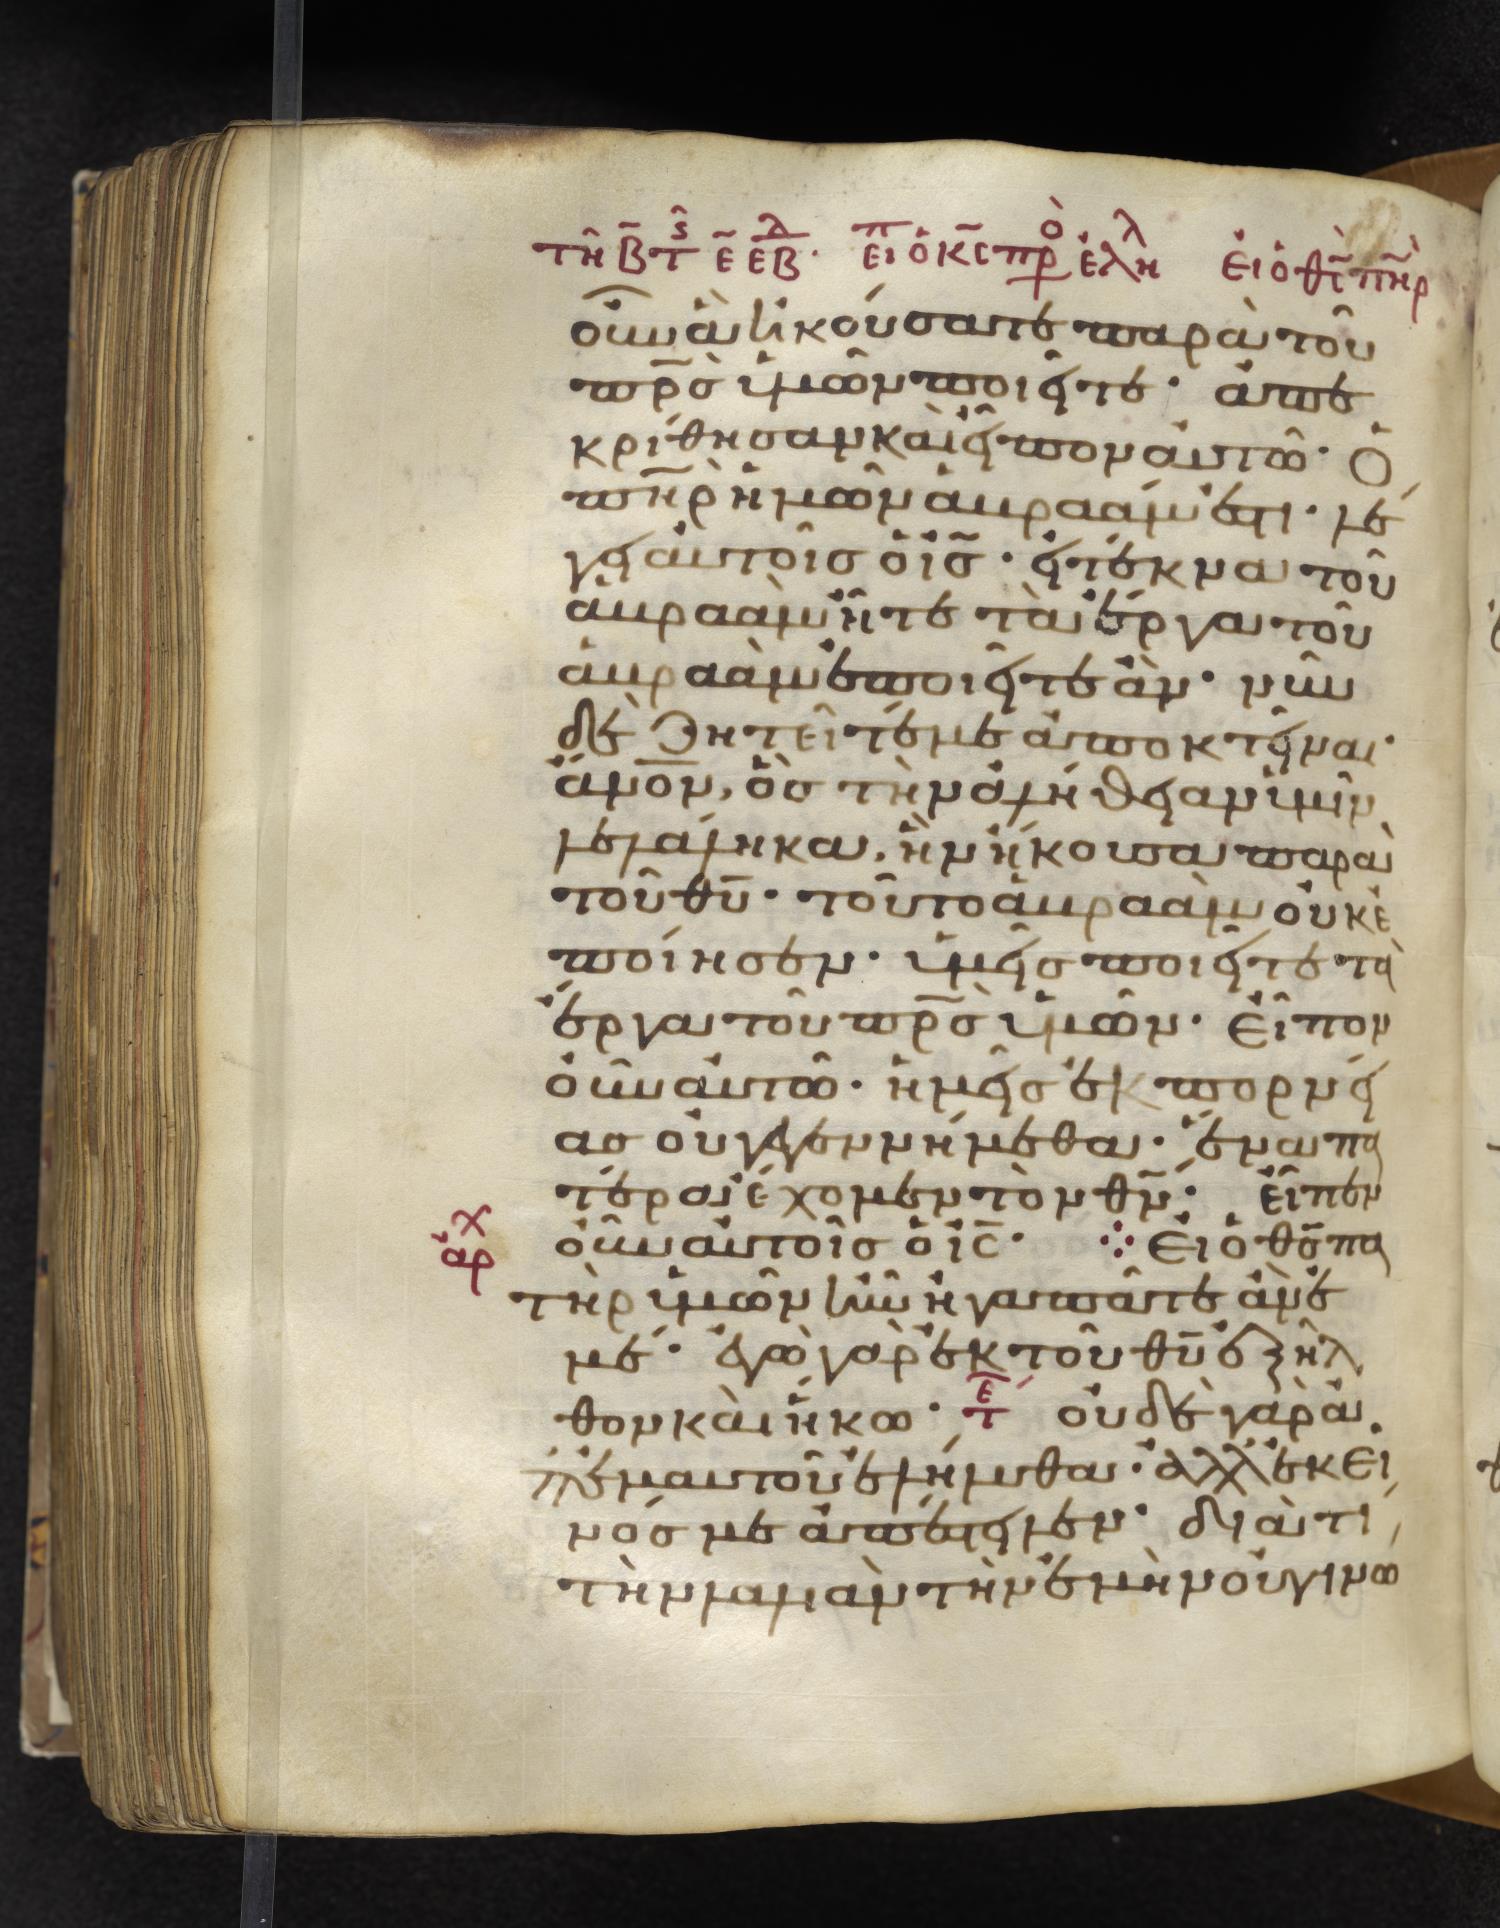 τῆ β̄ τ ς̂ ε̄ ε̄β̄ λ· εἶπ ὁ κ̄ς πρ ὸ ἐλη λ εἰ ὁ θ̄ς π̄η̄ρ
οὖν ἃ ἠκούσατε παρὰ τοῦ
π̄ρ̄ς ὑμῶν ποιεῖτε· ἀπε
κρίθησαν καὶ εἶπον αὐτῶ· Ὁ
π̄η̄ρ ἡμῶν ἀβραάμ ἐστι· λέ
γει αὐτοῖς ὁ ῑς̄· εἰ τέκνα τοῦ
ἀβραὰμ ἦτε τὰ ἔργα τοῦ
ἀβραὰμ ἐποιεῖτε ἄν· νῦν
δὲ ζητεῖτέ με ἀποκτεῖναι·
ἄν̄ο̄ν, ὃς τὴν ἀλήθειαν ὑμῖν
λελάληκα, ἣν ἤκουσα παρὰ
τοῦ θ̄ῡ· τοῦτο ἀβραὰμ οὐκ ἐ
ποίησεν· ὑμεῖς ποιεῖτε τὰ
ἔργα τοῦ π̄ρ̄ς ὑμῶν· Εἶπον
οὖν αὐτῶ· ἡμεῖς ἐκ πορνεί
ας οὐ γεγεννήμεθα· ἕνα πα
τέρα ἔχομεν τὸν θ̄ν̄· εἶπεν
οὖν αὐτοῖς ὁ ῑς̄· ⁘ Εἰ ὁ θ̄ς̄ πα
ἀρχ
τὴρ ὑμῶν ἦν ἠγαπᾶτε ἂν ἐ
μέ· ἐγὼ γὰρ ἐκ τοῦ θ̄ῡ ἐξῆλ
θον καὶ ἥκω· τε οὐδὲ γὰρ ἀ
π' ἐμαυτοῦ ἐλήλυθα· ἀλλ' ἐκεῖ
νός με ἀπέστειλεν· διὰ τί
τὴν λαλιὰν τὴν ἐμὴν οὐ γινώ